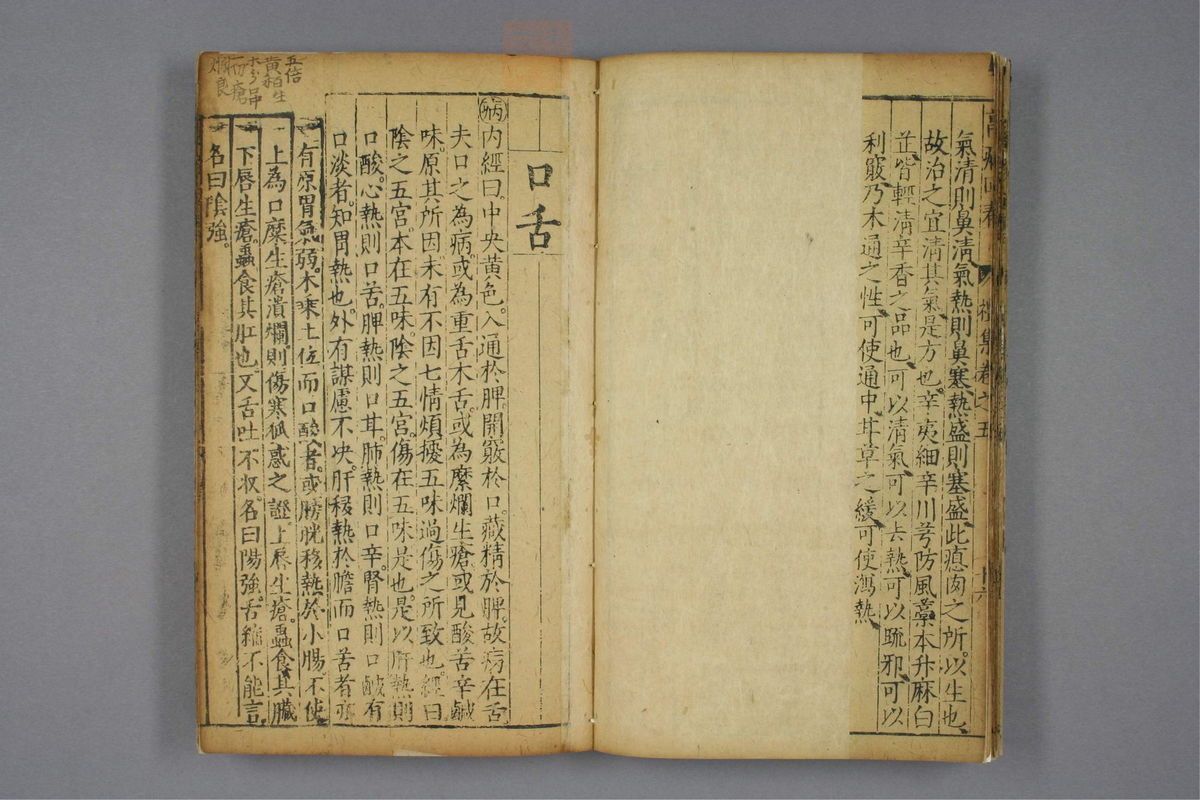 氣清則鼻清氣熱則鼻塞熱盛則塞盛此瘜肉之所以生也
故治之宜清其氣是方也辛夷細辛川芎防風藁本升麻白
芷皆輕清辛香之品也可以清氣可以去熱可以疏邪可以
利竅乃木通之性可使通中甘草之緩可使瀉熱
口舌
病內經曰中央黃色入通於脾開竅於口藏精於脾故病在舌
夫口之為病或為重舌木舌或為糜爛生瘡或見酸苦辛鹹
味原其所因未有不因七情煩擾五味過傷之所致也經曰
陰之五宮本在五味陰之五宮傷在五味是也是以肝熱則
口酸心熱則口苦脾熱則口甘肺熱則口辛腎熱則口鹹有
口淡者知胃熱也外有謀慮不決肝移熱於膽而口苦者亦
有原胃氣弱木乘土位而口酸者或膀胱移熱於小腸不使
上為口糜生瘡潰爛則傷寒狐惑之證上唇生瘡蟲食其臟
下唇生瘡蟲食其肛也又舌吐不収名曰陽強舌縮不能言
名曰陰強
五倍
黃柏